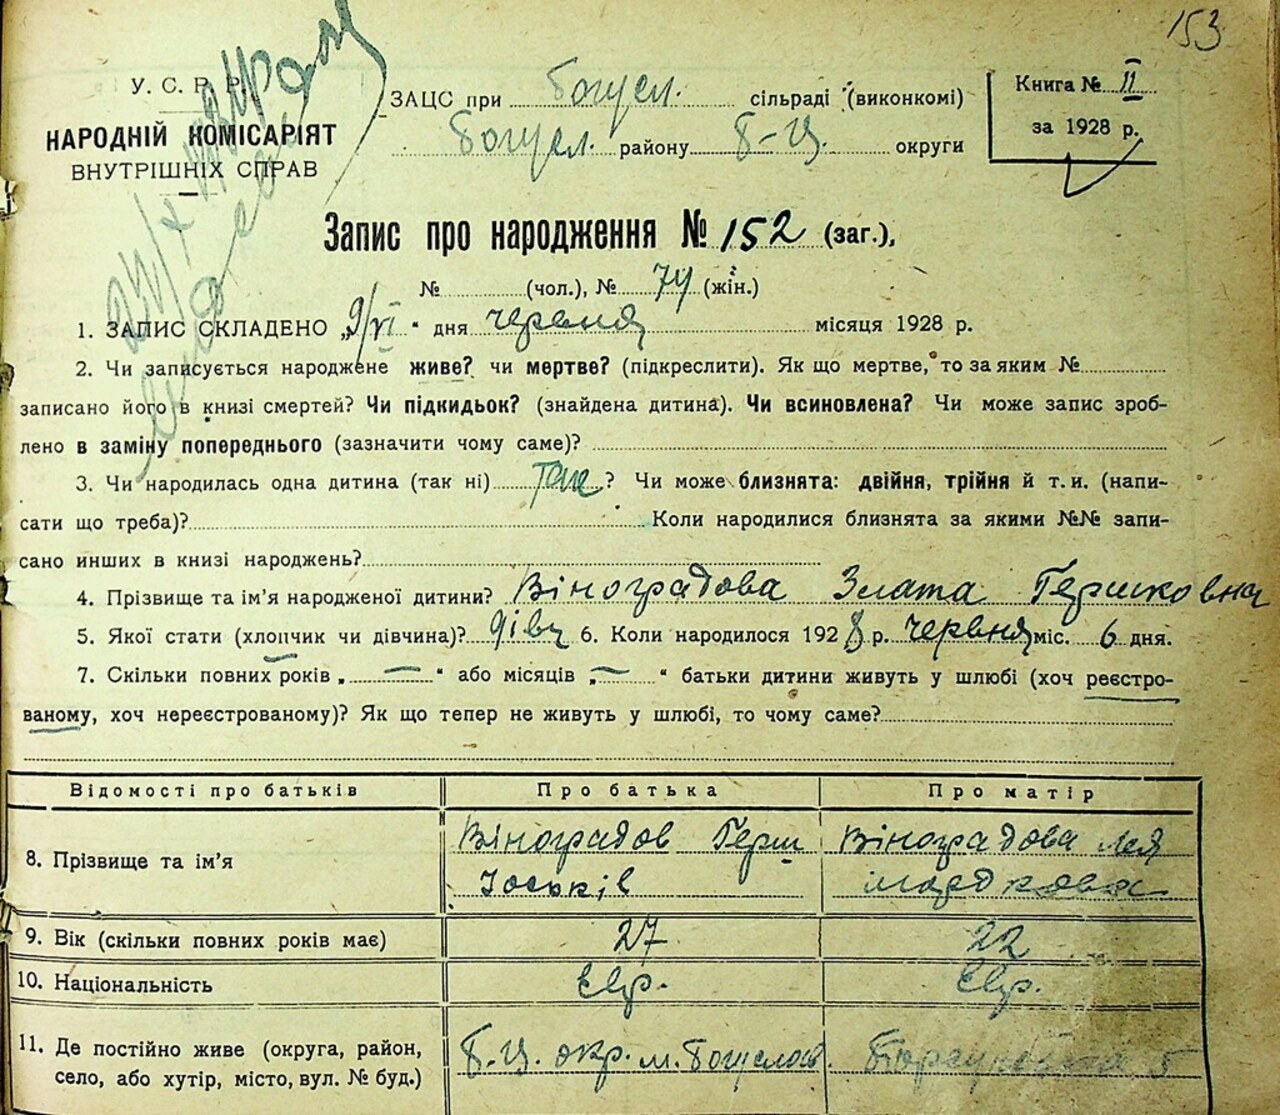 153
У. С. Р. Р.
НАРОДНІЙ КОМІСАРІЯТ
ВНУТРІШНІХ СПРАВ
ЗАЦС при Богусл. сільраді (виконкомі)
Богусл. району Б-Ц. округи
Книга № II
за 1928 р.
Запис про народження № 152 (заг.),
№ (чол.), № 74 (жін.)
1. ЗАПИС СКЛАДЕНО „9/VI" дня червня місяця 1928 р.
2. Чи записується народжене живе? чи мертве? (підкреслити). Як що мертве, то за яким №
записано його в книзі смертей? Чи підкидьок? (знайдена дитина). Чи всиновлена? Чи може запис зроб-
лено в заміну попереднього (зазначити чому саме)?
3. Чи народилась одна дитина (так ні) так? Чи може близнята: двійня, трійня й т. и. (напи-
сати що треба)? Коли народилися близнята за якими №№ запи-
сано инших в книзі народжень?
4. Прізвище та ім'я народженої дитини? Віноградова Злата Гершковна
5. Якої стати (хлопчик чи дівчина)? дівч 6. Коли народилося 1928 р. червня міс. 6 дня.
7. Скільки повних років „—" або місяців „—" батьки дитини живуть у шлюбі (хоч реєстро-
ваному, хоч нереєстрованому)? Як що тепер не живуть у шлюбі, то чому саме?
Відомості про батьків Про батька Про матір
8. Прізвище та ім'я Віноградов Герш Віноградова Лея
Йоськів Мордкова
9. Вік (скільки повних років має) 27 22
10. Національність Євр. Євр.
11. Де постійно живе (округа, район,
село, або хутір, місто, вул. № буд.) Б-Ц. окр. м. Богуслав. 5